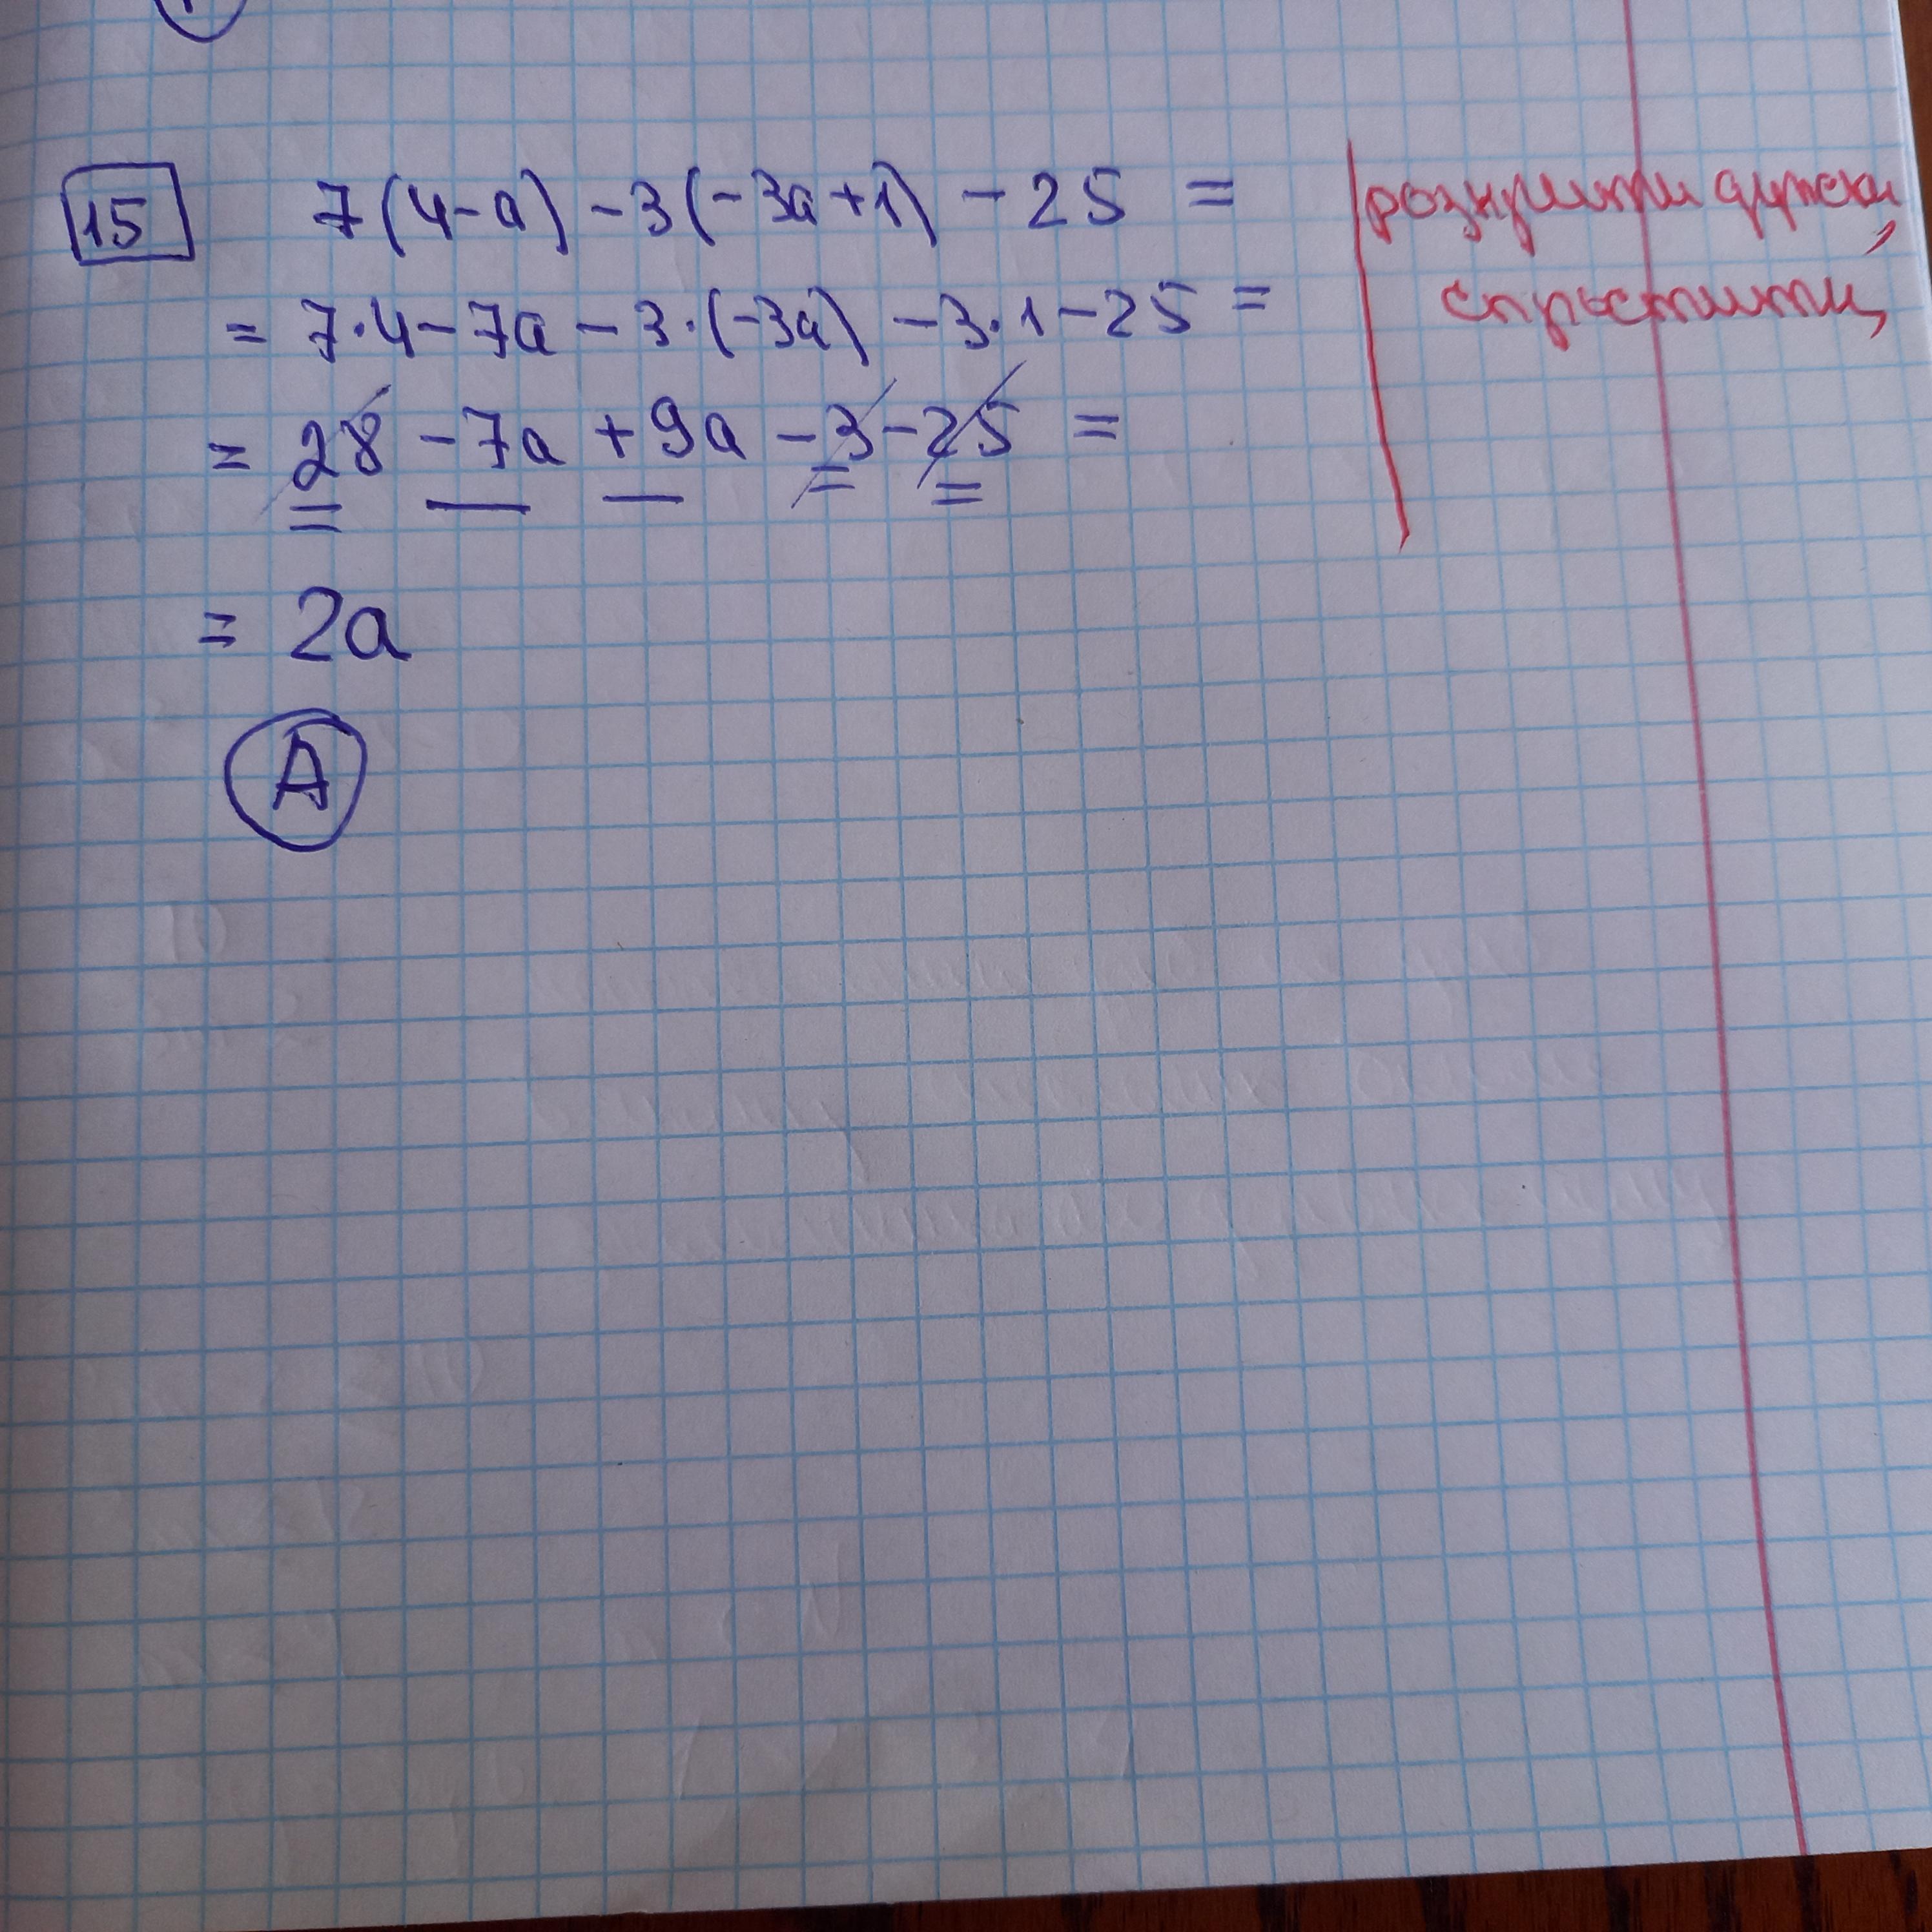 15 7(4-a) -3(-3a+1) - 25 =
розкрити дужки,
= 7·4 - 7a - 3·(-3a) - 3·1 - 25 =
спростити,
= 28 - 7a + 9a - 3 - 25 =
= 2a
A